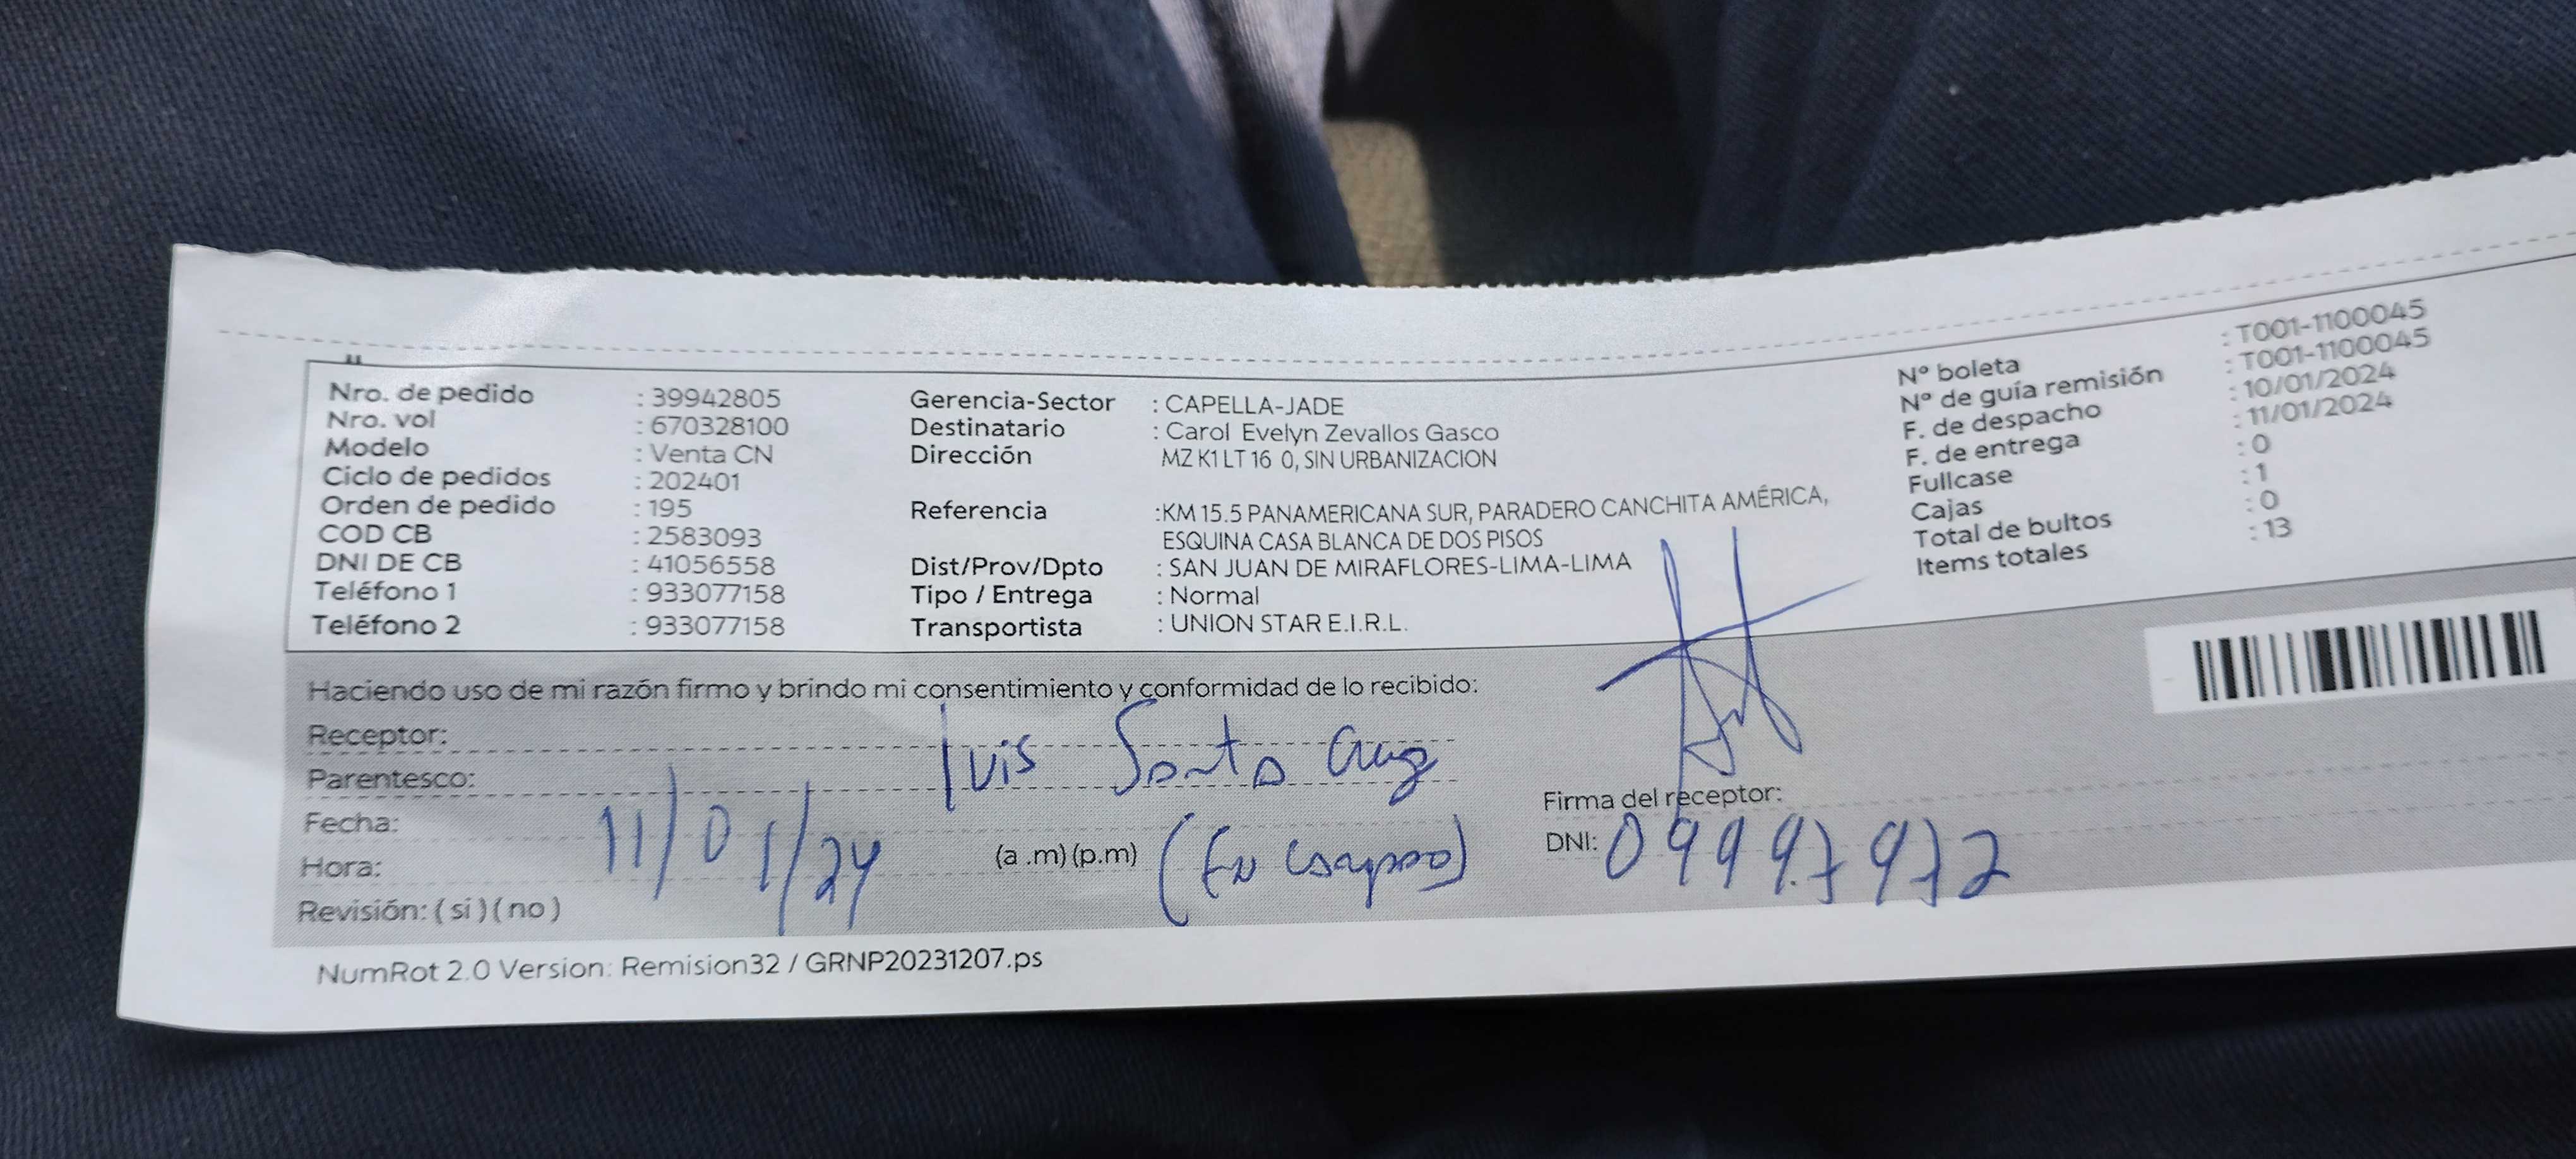 Nro. de pedido : 39942805
Nro. vol : 670328100
Modelo : Venta CN
Ciclo de pedidos : 202401
Orden de pedido : 195
COD CB : 2583093
DNI DE CB : 41056558
Teléfono 1 : 933077158
Teléfono 2 : 933077158
Gerencia-Sector : CAPELLA-JADE
Destinatario : Carol Evelyn Zevallos Gasco
Dirección MZ K1 LT 16 0, SIN URBANIZACION
Referencia :KM 15.5 PANAMERICANA SUR, PARADERO CANCHITA AMÉRICA,
ESQUINA CASA BLANCA DE DOS PISOS
Dist/Prov/Dpto : SAN JUAN DE MIRAFLORES-LIMA-LIMA
Tipo / Entrega : Normal
Transportista : UNION STAR E.I.R.L.
N° boleta : T001-1100045
N° de guía remisión : T001-1100045
F. de despacho : 10/01/2024
F. de entrega : 11/01/2024
Fullcase : 0
Cajas : 1
Total de bultos : 0
Items totales : 13
Haciendo uso de mi razón firmo y brindo mi consentimiento y conformidad de lo recibido:
Receptor: Luis Santa Cruz
Parentesco:
Fecha: 11/01/24
Hora: (a .m) (p.m) (En
Revisión: ( si ) ( no )
Firma del receptor:
DNI: 09997972
NumRot 2.0 Version: Remision32 / GRNP20231207.ps